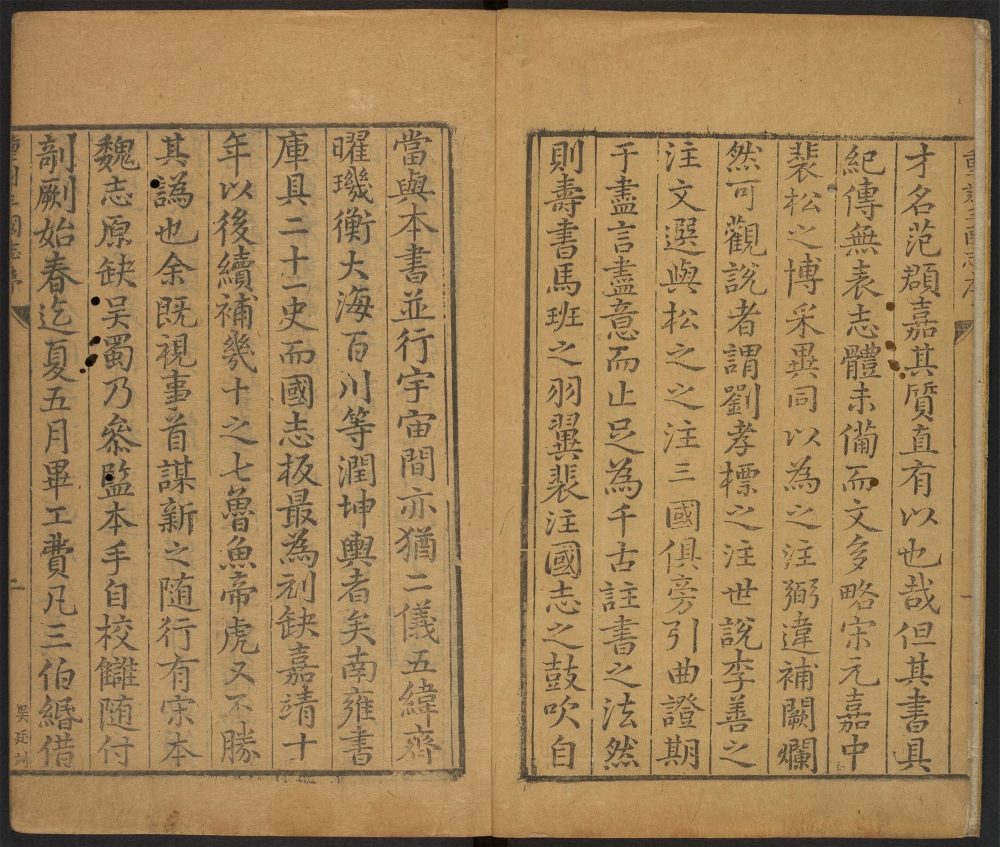 重刻三國志序
一
才名范頵嘉其質直有以也哉但其書具
紀傳無表志體未備而文多略宋元嘉中
裴松之博采異同以為之注弼違補闕爛
然可觀說者謂劉孝標之注世說李善之
注文選與松之之注三國俱旁引曲證期
于盡言盡意而止足為千古註書之法然
則壽書馬班之羽翼裴注國志之鼓吹自
當與本書並行宇宙間亦猶二儀五緯齊
曜璣衡大海百川等潤坤輿者矣南雍書
庫具二十一史而國志板最為刓缺嘉靖十
年以後續補幾十之七魯魚帝虎又不勝
其譌也余既視事首謀新之随行有宋本
魏志原缺吴蜀乃叅監本手自校讎随付
剞劂始春迄夏五月畢工費凡三伯緡借
國志序
二
吴廷刻